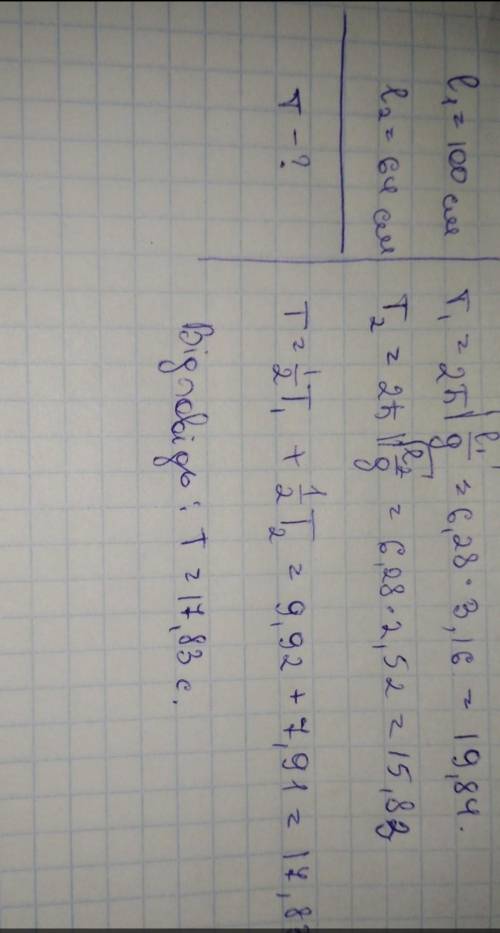 l₁ = 100 см
l₂ = 64 см
T - ?
T₁ = 2π√(l₁/g) = 6,28·3,16 = 19,84.
T₂ = 2π√(l₂/g) = 6,28·2,52 = 15,82
T = 1/2 T₁ + 1/2 T₂ = 9,92 + 7,91 = 17,83
Відповідь: T = 17,83 с.